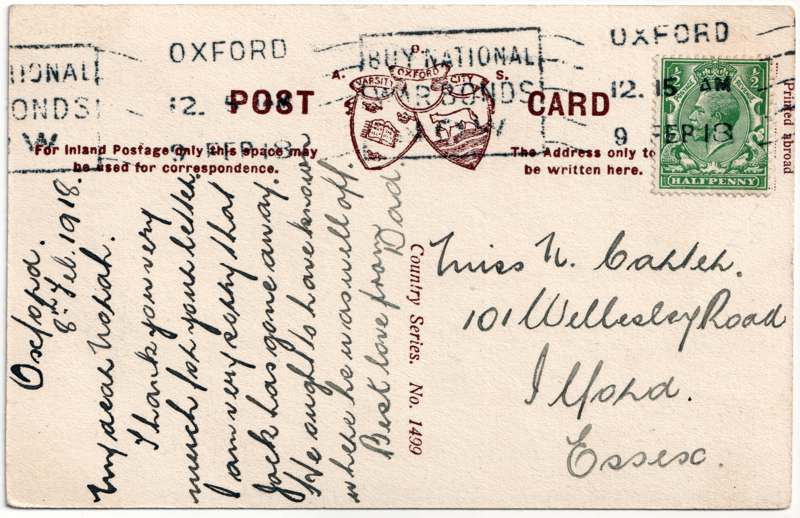 OXFORD
12. 15 AM
9 FEP 18
BUY NATIONAL
WAR BONDS
NOW
OXFORD
12.
9 FEP 18
IONAL
ONDS
W
A. D. S.
VARSITY OXFORD CITY
POST CARD
For Inland Postage only this space may
be used for correspondence.
The Address only to
be written here.
HALFPENNY
Printed abroad
Country Series. No. 1499
Oxford.
8th Feb. 1918.
My dear Norah.
Thank you very
much for your letter.
I am very sorry that
Jack has gone away.
He ought to have known
where he was well off.
Best love from
Dad
Miss N. Carter.
101 Wellesley Road
Ilford.
Essex.